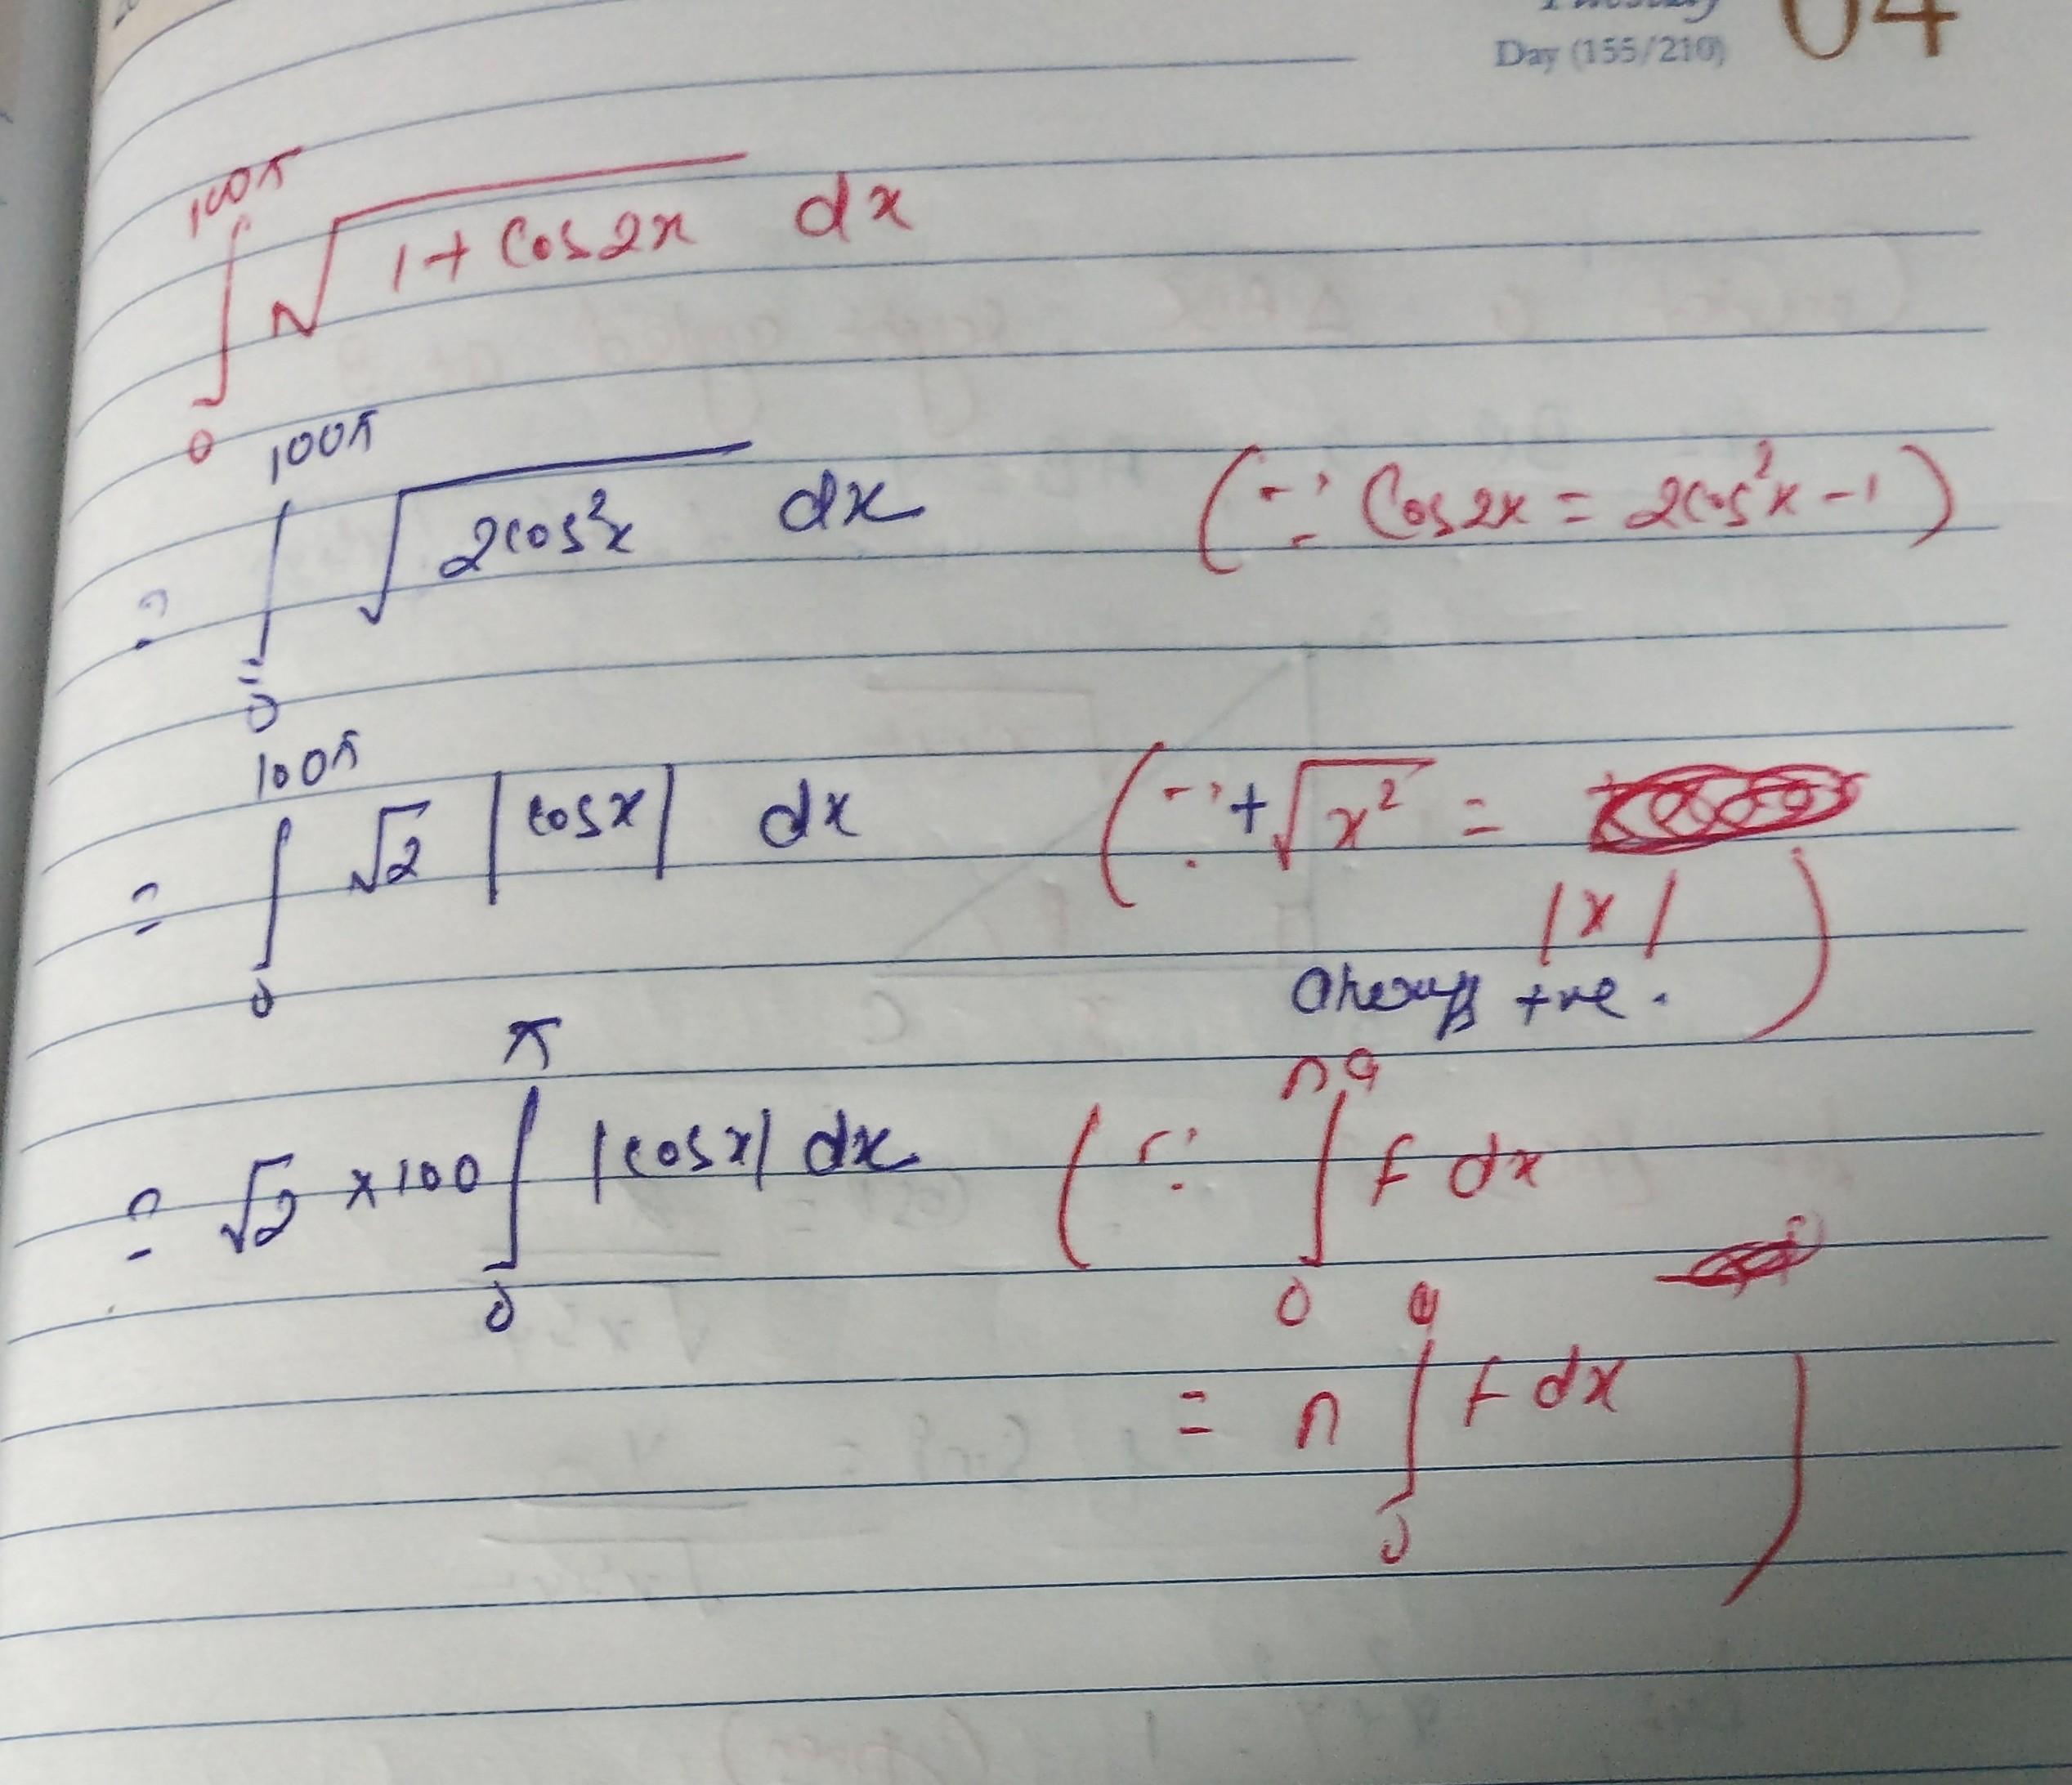 Tuesday 04
Day (155/210)
∫₀^{100π} √(1 + cos2x) dx
= ∫₀^{100π} √(2cos²x) dx (∵ cos2x = 2cos²x - 1)
= ∫₀^{100π} √2 |cosx| dx (∵ +√(x²) =
|x|
+ve. )
= √2 × 100 ∫₀^{π} |cosx| dx (∵ ∫₀^{na} f dx
= n ∫₀^{a} f dx )